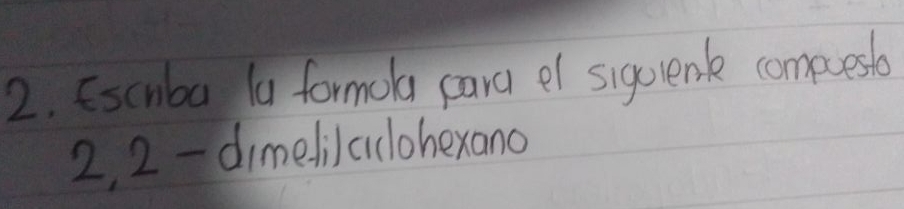 2. Escriba la formola para el siguiente compuesto
2,2-dimetilciclohexano